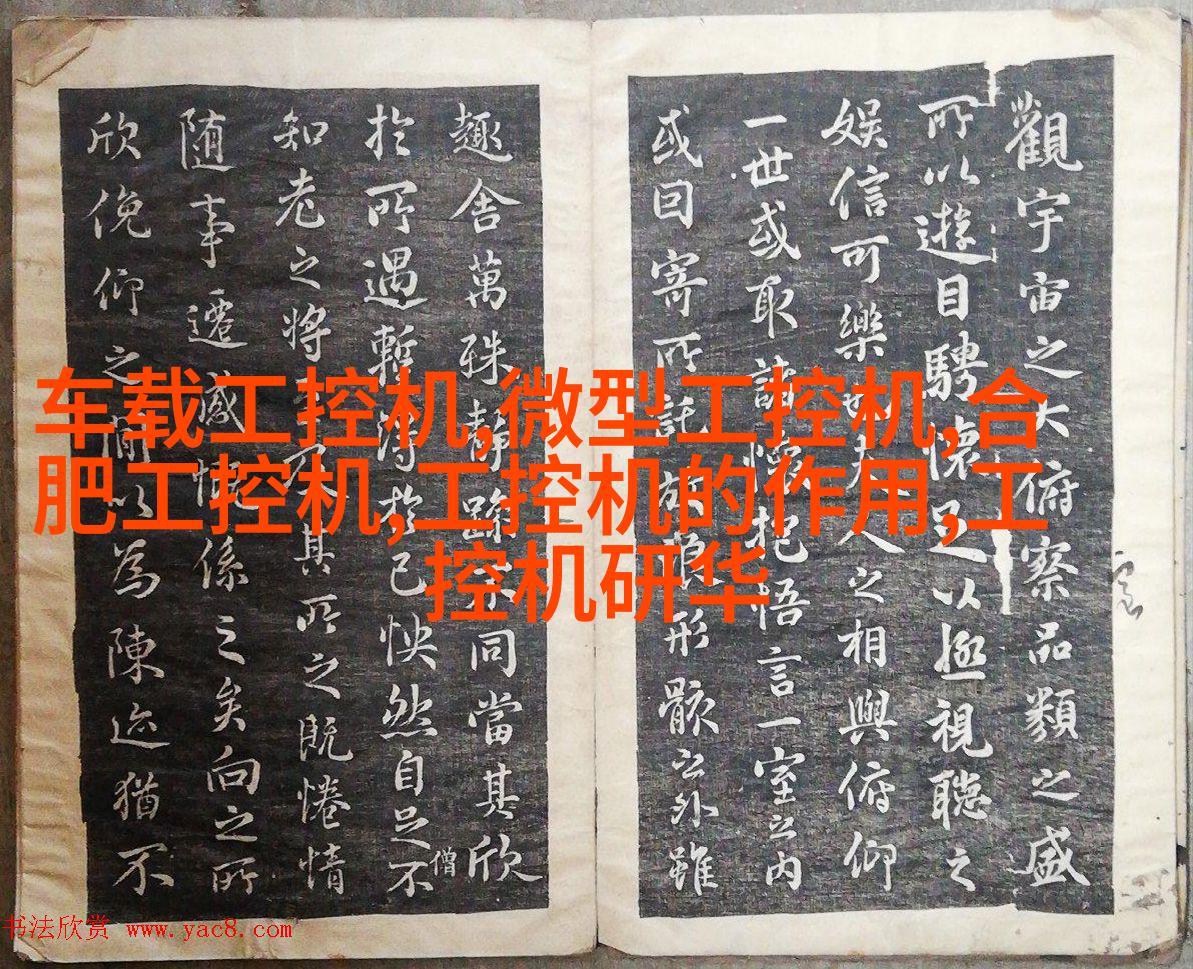 觀宇宙之大俯察品類之盛
所以遊目騁懷足以極視聽之
娱信可樂也夫人之相與俯仰
一世或取諸懷抱悟言一室之内
或因寄所託放浪形骸之外雖
趣舍萬殊静躁不同當其欣
於所遇暫得於己怏然自足不
僧
知老之將至及其所之既惓情
随事遷感慨係之矣向之所
欣俛仰之間以為陳迹猶不
车载工控机,微型工控机,合
肥工控机,工控机的作用,工
控机研华
书法欣赏 www.yac8.com